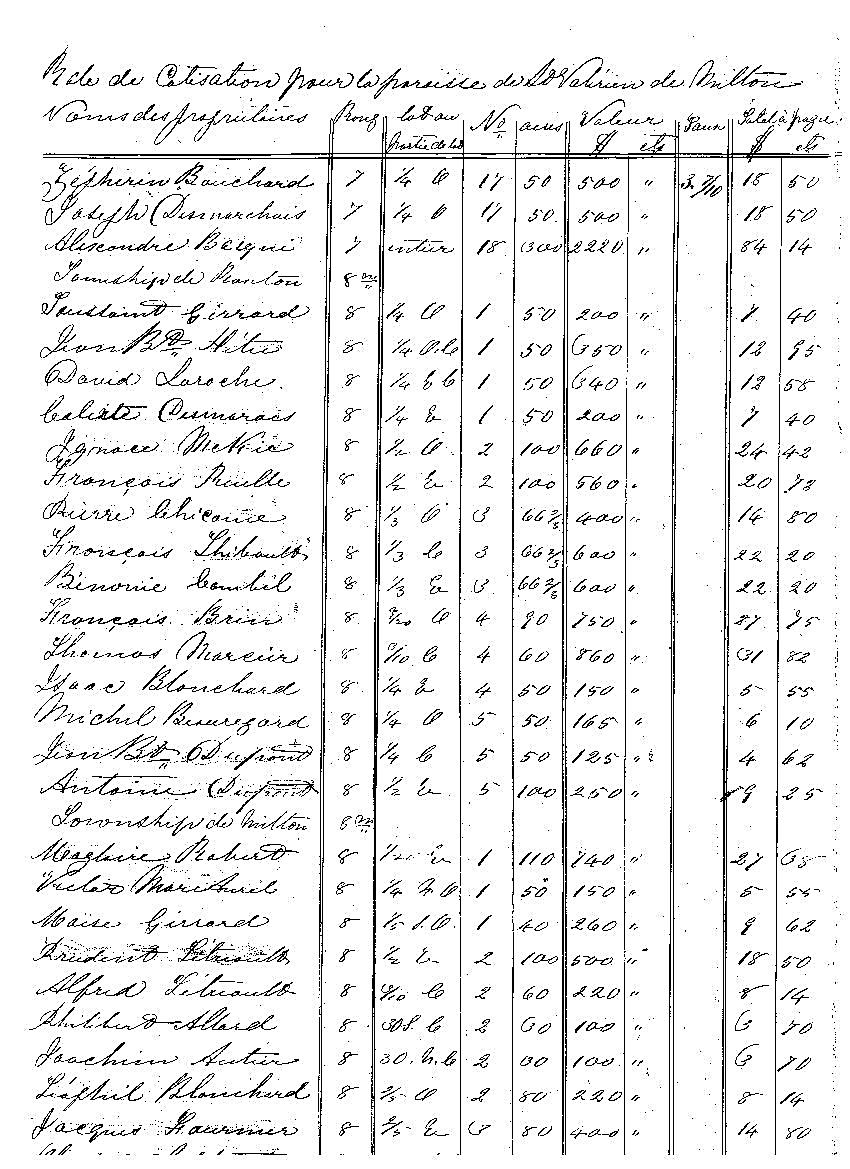 Role de Cotisation pour la paroisse de St Valérien de Milton
Noms des propriétaires Rang lot ou partie de lot No acres Valeur $ cts Taux Total à payer $ cts
Zéphirin Bouchard 7 1/4 O 17 50 500 " 3.7/10 18 50
Joseph Desmarchais 7 1/4 O 17 50 500 " 18 50
Alexcandre Bèque 7 entier 18 300 2220 " 84 14
Township de Roxton 8m
Toussaint Girrard 8 1/4 O 1 50 200 " 7 40
Jean Bte 8 1/4 O.C 1 50 350 " 12 95
David Laroche 8 1/4 E C 1 50 340 " 12 58
Calixte Desmarais 8 1/4 E 1 50 200 " 7 40
Ignace McKie 8 1/2 O 2 100 660 " 24 42
François Ruelle 8 1/2 E 2 100 560 " 20 72
Pierre Chicoine 8 1/3 O 3 66 2/3 400 " 14 80
François Thibault 8 1/3 C 3 66 2/3 600 " 22 20
Bénonie 8 1/3 E 3 66 2/3 600 " 22 20
François Brin 8 9/20 O 4 90 750 " 27 75
Thomas Marcier 8 3/10 C 4 60 860 " 31 82
Isaac Blanchard 8 1/4 E 4 50 150 " 5 55
Michel Beauregard 8 1/4 O 5 50 165 " 6 10
Jean Bte Dupont 8 1/4 C 5 50 125 " 4 62
Antoine Dupont 8 1/2 E 5 100 250 " 9 25
Township de Milton 8m
Robert 8 E 1 110 740 " 27 38
8 1/4 N.O 1 50 150 " 5 55
Moise Girrard 8 1/5 S.O. 1 40 260 " 9 62
Prudent Tétrault 8 1/2 E 2 100 500 " 18 50
Alfred Tétriault 8 3/10 C 2 60 220 " 8 14
Philibert Allard 8 30 S. C 2 30 100 " 3 70
Joachim Autier 8 30. N. C 2 30 100 " 3 70
Blanchard 8 2/5 O 2 80 220 " 8 14
Jacques Fournier 8 2/5 E 3 80 400 " 14 80